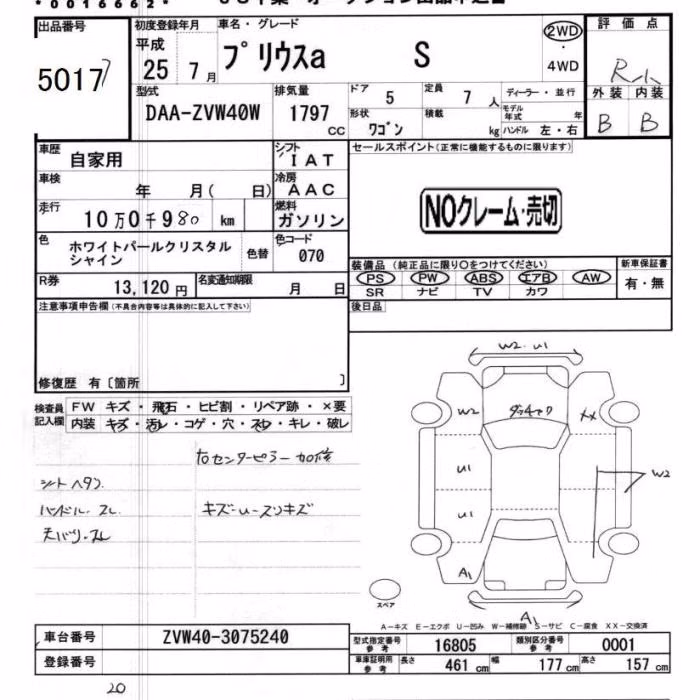 *0016662*
出品番号
5017
初度登録年月
平成
25 7月
車名・グレード
プリウスa S
2WD
・
4WD
評価点
R小
外装 内装
B B
型式
DAA-ZVW40W
排気量
1797
CC
ドア 5
定員 7人
ディーラー・並行
モデル年式 年
形状 ワゴン
積載 kg
ハンドル 左・右
車歴 自家用
シフト IAT
セールスポイント(正常に機能するものに限ります)
車検 年 月( 日)
冷房 AAC
NOクレーム・売切
走行 10万0千980 km
燃料 ガソリン
色 ホワイトパールクリスタル
シャイン
色替
色コード 070
装備品 (純正品に限り○をつけてください)
新車保証書
PS PW ABS エアB AW
有・無
SR ナビ TV カワ
R券 13,120円
名変通知期限 月 日
後日品
注意事項申告欄(不具合内容等は具体的に記入して下さい)
修復歴 有〔箇所 〕
検査員記入欄
FW キズ・飛石・ヒビ割・リペア跡・×要
内装 キズ・汚レ・コゲ・穴・スレ・キレ・破レ
右センターピラー加修
シートヘタリ
ハンドル・スレ
キズ・U・スリキズ
天バリ・スレ
W2・U1
W2
XX
U1
W2
U1
A1
A1
スペア
A-キズ E-エクボ U-凹み W-補修跡 S-サビ C-腐食 XX-交換済
車台番号 ZVW40-3075240
登録番号
型式指定番号 参考 16805
類別区分番号 参考 0001
車庫証明用 参考 長さ 461cm 幅 177cm 高さ 157cm
20